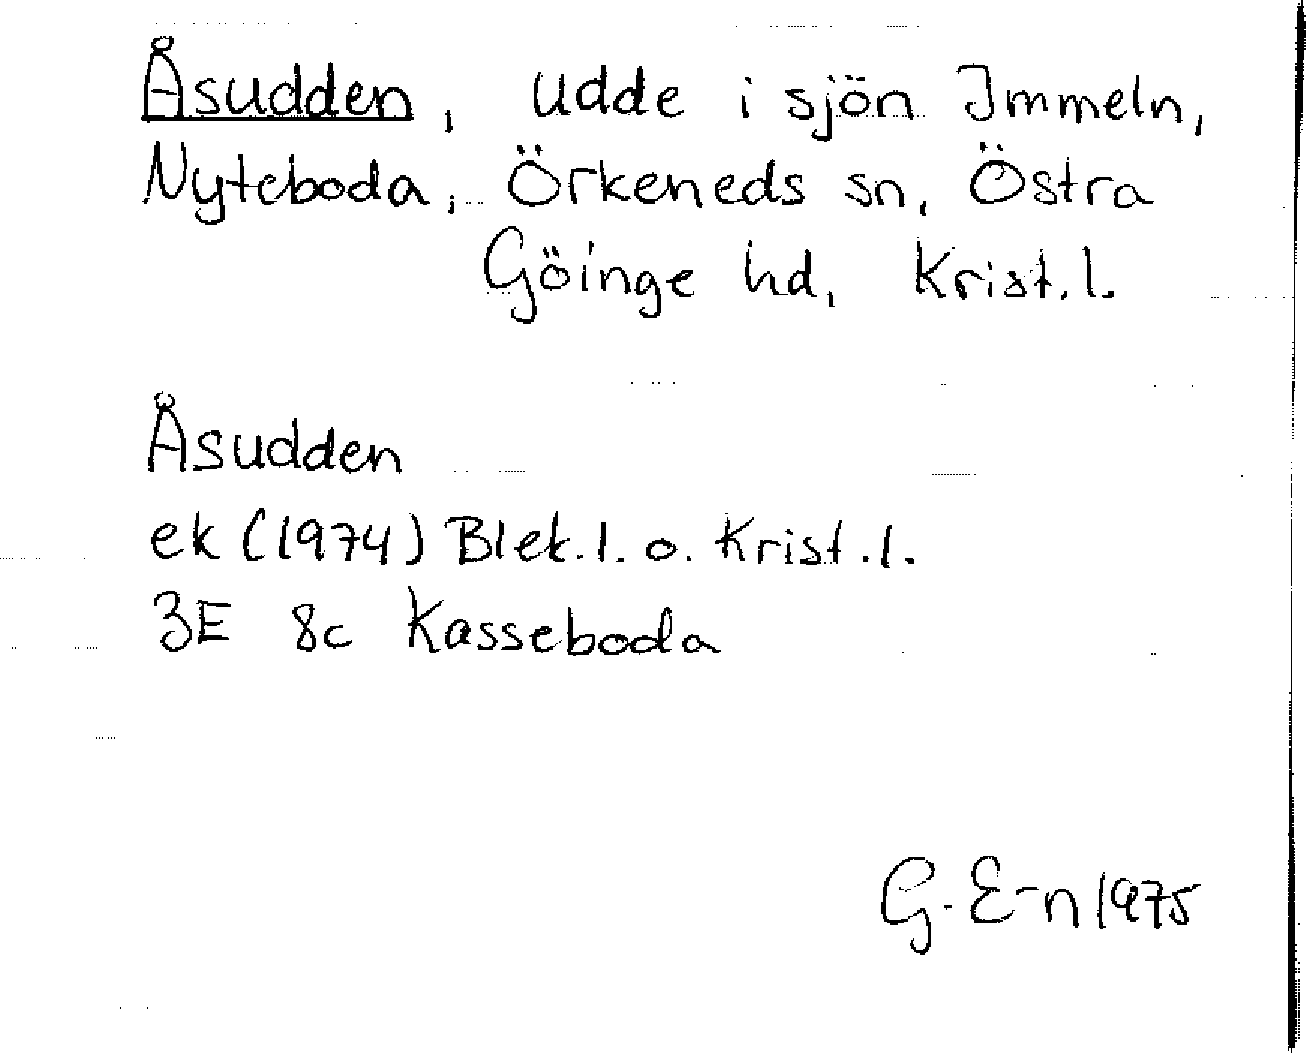 Åsudden, Udde i sjön Immeln,
Nyteboda, Örkeneds sn, Östra
Göinge hd, Krist. l.
Åsudden
ek (1974) Blek. l. o. Krist. l.
3E 8c Kasseboda
G. E-n 1975